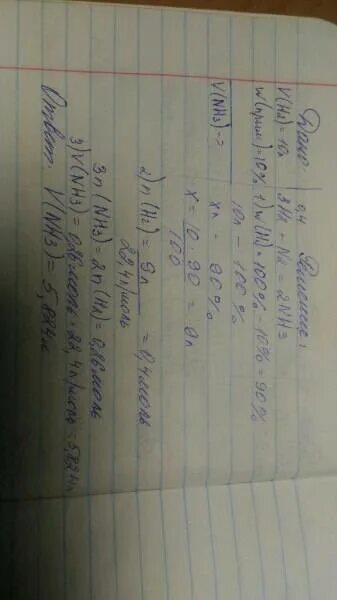 Дано: Решение:
0,4
V(H2)=10л 3H2 + N2 = 2NH3
W(прим)=10% 1) W(H2)=100% - 10% = 90%
10л - 100%
V(NH3)-? xл - 90%
x = 10 · 90 / 100 = 9л
2) n(H2) = 9л / 22,4л/моль = 0,4моль
3n(NH3) = 2n(H2) = 0,26моль
3) V(NH3) = 0,26моль · 22,4л/моль = 5,824л
Ответ: V(NH3) = 5,824л